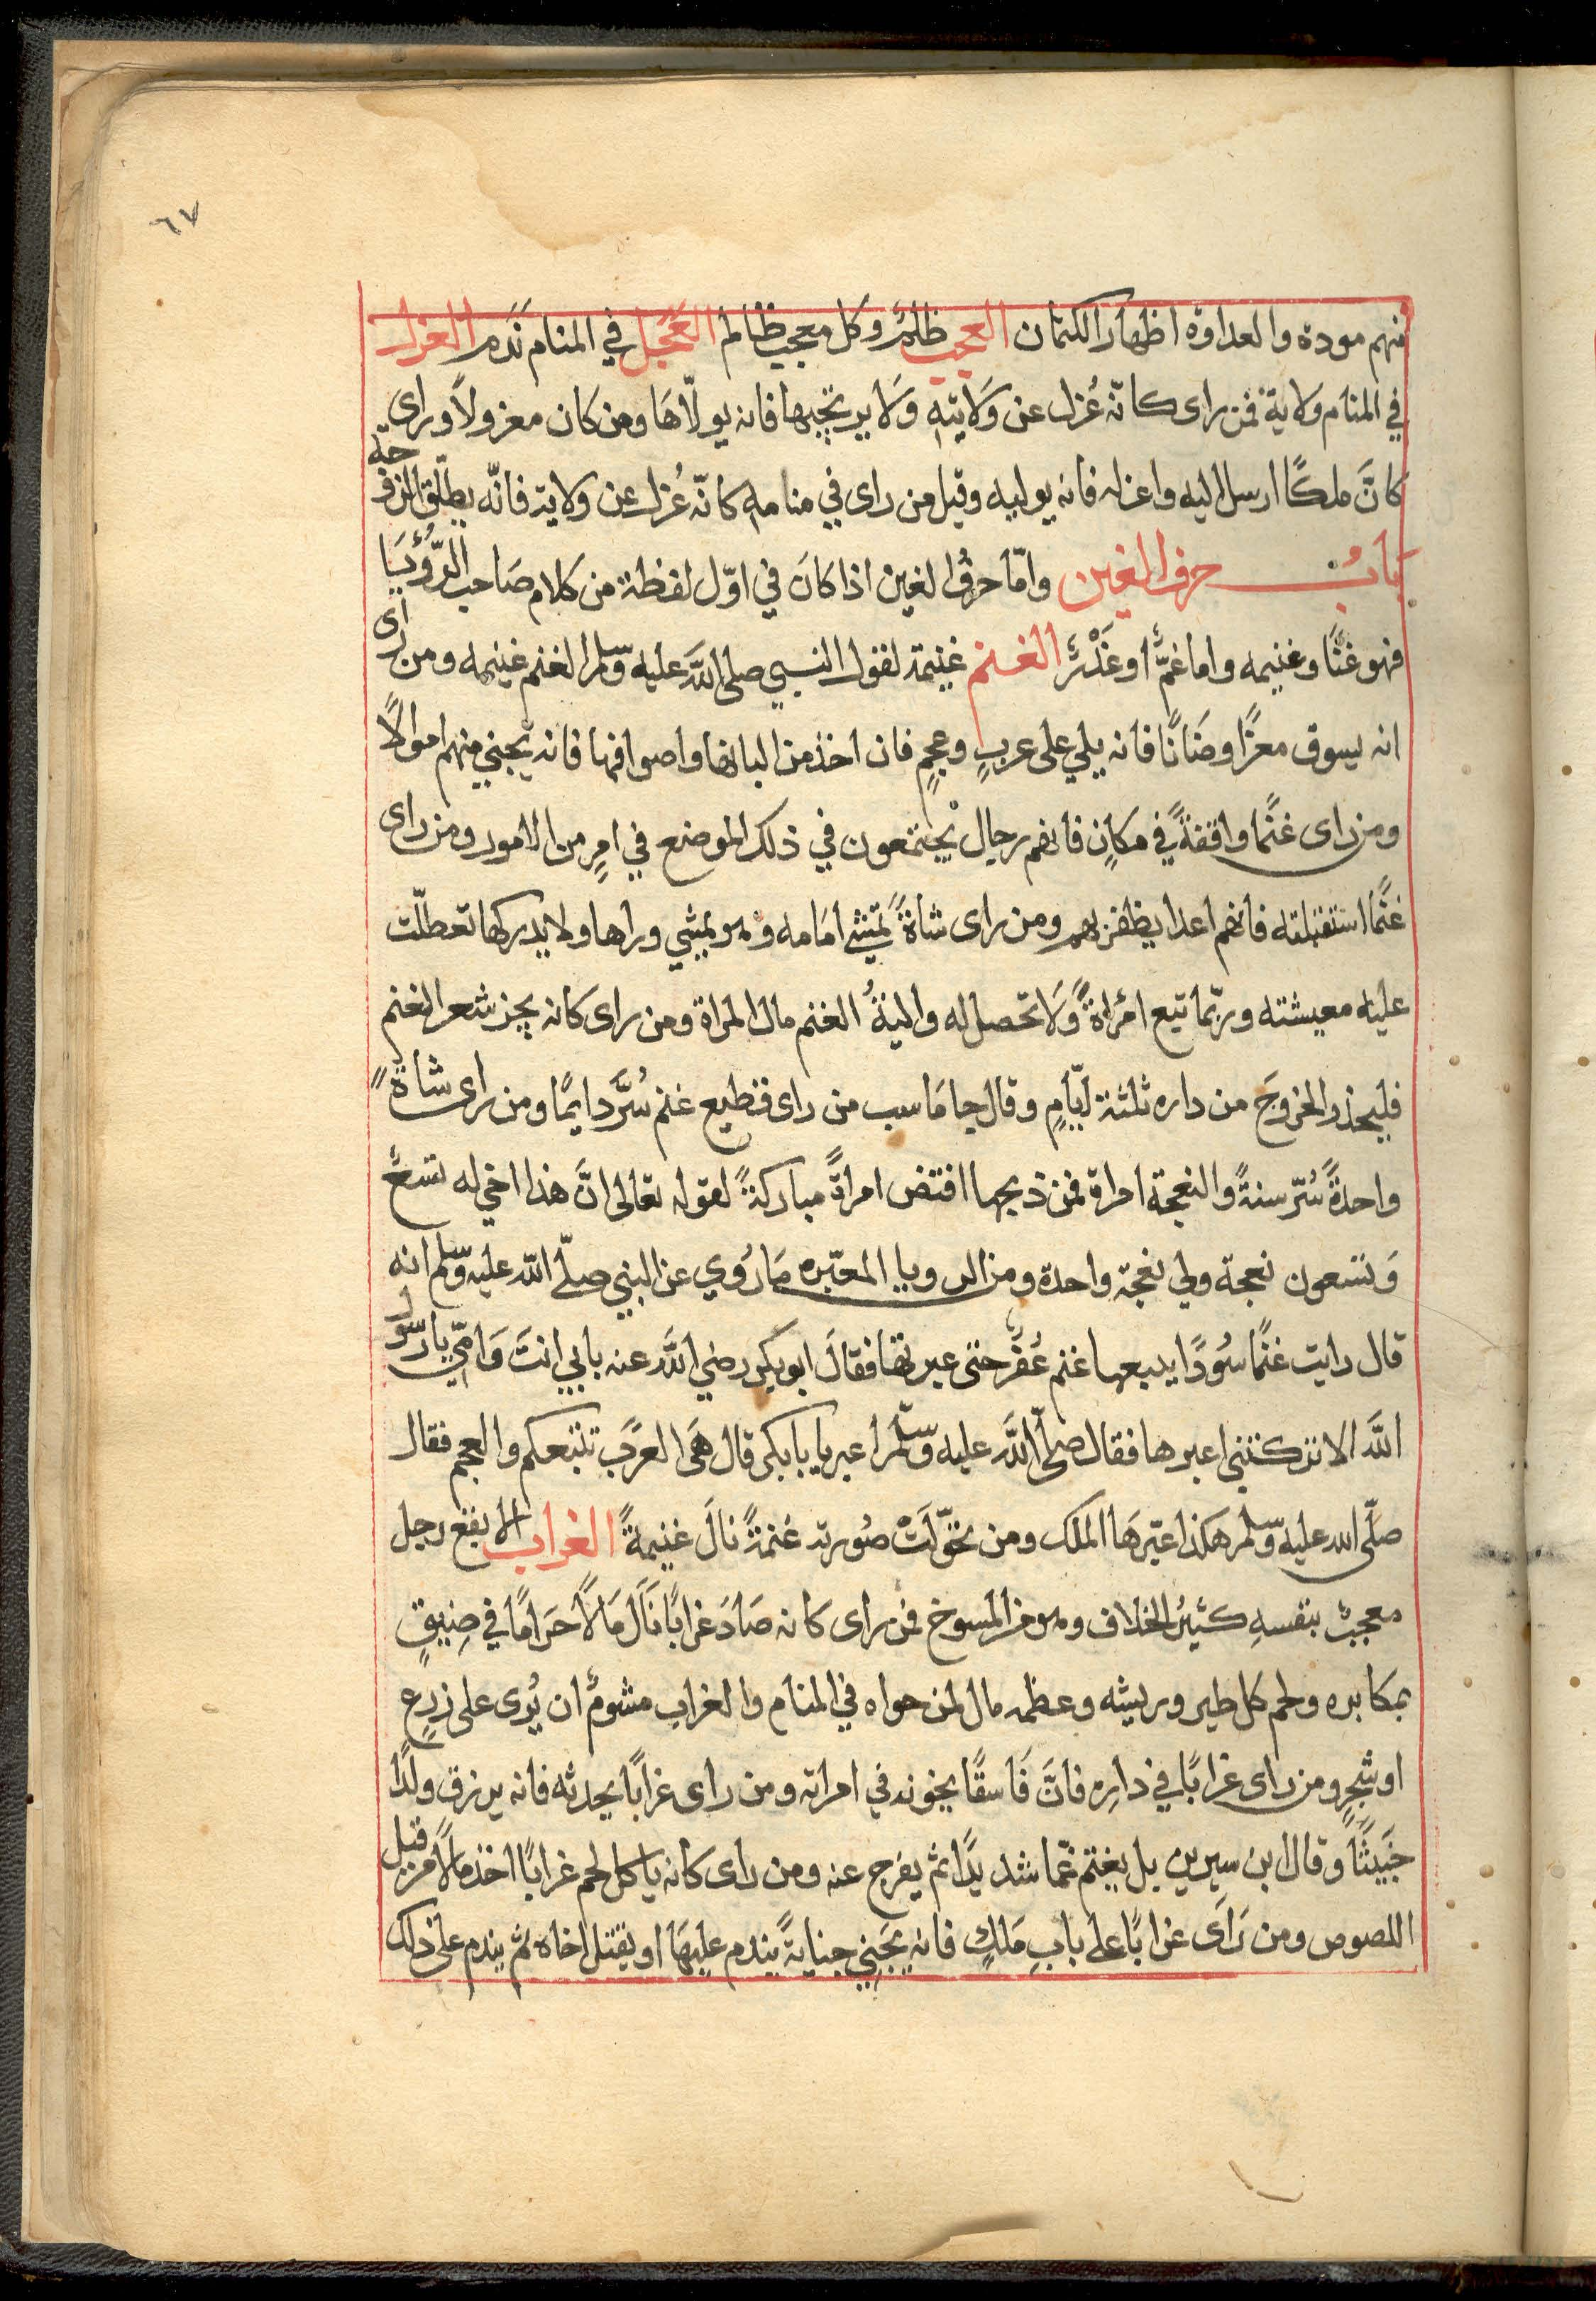 ٦٧
منهم مودة والعداوة اظهار الكتمان العجب ظلمٌ وكل معجب ظالم العَجَل في المنام نَدَم العزل
في المنام ولاية فمن راى كانّه عُزل عن وَلايتهِ وَلا يرتجيها فانه يولّاهَا ومن كان معزولًا وراى
كانَّ ملكًا ارسل اليه واعزله فانه يوليه وقيل من راى في منامه كانّه عُزل عن ولايته فانّه يطلّق الزوجه
بابُ حرف الغين وامّا حرفُ الغين اذا كانَ في اوّل لفظة من كلام صَاحب الرُّؤْيَا
فهو غنًا وغنيمه واما غمٌّ او غَدْرٌ الغنم غنيمة لقول النبي صلى اللَّه عليه وسّلم الغنم غنيمه ومن راى
انه يسوق معزًا وضَانًا فانه يلي على عربٍ وعجمٍ فان اخذ من البانها واصوافها فانه يجبني منهم اموالًا
ومن راى غنًما واقفةً في مكانٍ فانهم رجال يجْتمعون في ذلك الموضع في امرٍ من الامور ومن راى
غنًما استقبلته فانهم اعدا يظفر بهم ومن راى شاةً تمشي امَامه وهو يمشي وراها ولا يدركها تعطلّت
عليه معيشته وربّما تبع امْراةً وَلا تحصل له والية الغنم مال المراة ومن راى كانه يجز شعر الغنم
فليحذر الخروجَ من داره ثلثة ايّامٍ وقال جامَاسب من راى قطيع غنم سُرَّ دايمًا ومن راى شاةً
واحدةً سُرّ سنةً والنعجة امراة فمن ذبحها افتض امراةً مباركةً لقوله تعالى انَّ هذا اخي له تسعٌ
وَتسعون نعجة ولي نعجة واحدة ومن الرويا المعبّره مَا رُوي عن النبي صلّى اللّه عليه وسّلم انه
قال رايت غنًما سُودًا يتبعها غنم عُفْرٌ حتى عبر تها فقالَ ابو بكر رضي اللَّه عنه بابي انتَ وَامّي يا رسول
اللَّه الا تركتني اعبرها فقال صلّى اللَّه عليه وسّلم اعبر يا بابكر قال هَى العَرَب تتبعكم والعجم فقال
صلّى الله عليه وسّلم هكذا عبّرهَا الملك ومن تحوّلَتْ صُورته غنمةً نالَ غنيمةً الغراب الابقع رجل
معجبٌ بنفسهِ كثيرُ الخلاف وهو من المسوخ فمن راى كانه صَادَ غرابًا نَالَ مَالًا حَرامًا في ضِيقٍ
بمكابره ولحم كل طير وريشه وعظمه مال لمن حواه في المنام والغراب مشومٌ ان يُرى على زرعٍ
او شجرٍ ومن راى غرابًا في دارِه فانَّ فَاسقًا يخونه في امراته ومن راى غرابًا يحدثه فانه يرزق ولدًا
خَبيثًا وقال ابن سيرين بل يغتم غمّا شديدًا ثم يفرج عنه ومن راى كانه ياكل لحم غرابًا اخذ مالًا من قبل
اللصوص ومن رَاَى غرابًا على بابِ مَلكٍ فانه يَجَني جنايةً يندم عليهَا او يقتل اخاه ثم يندم على ذلك